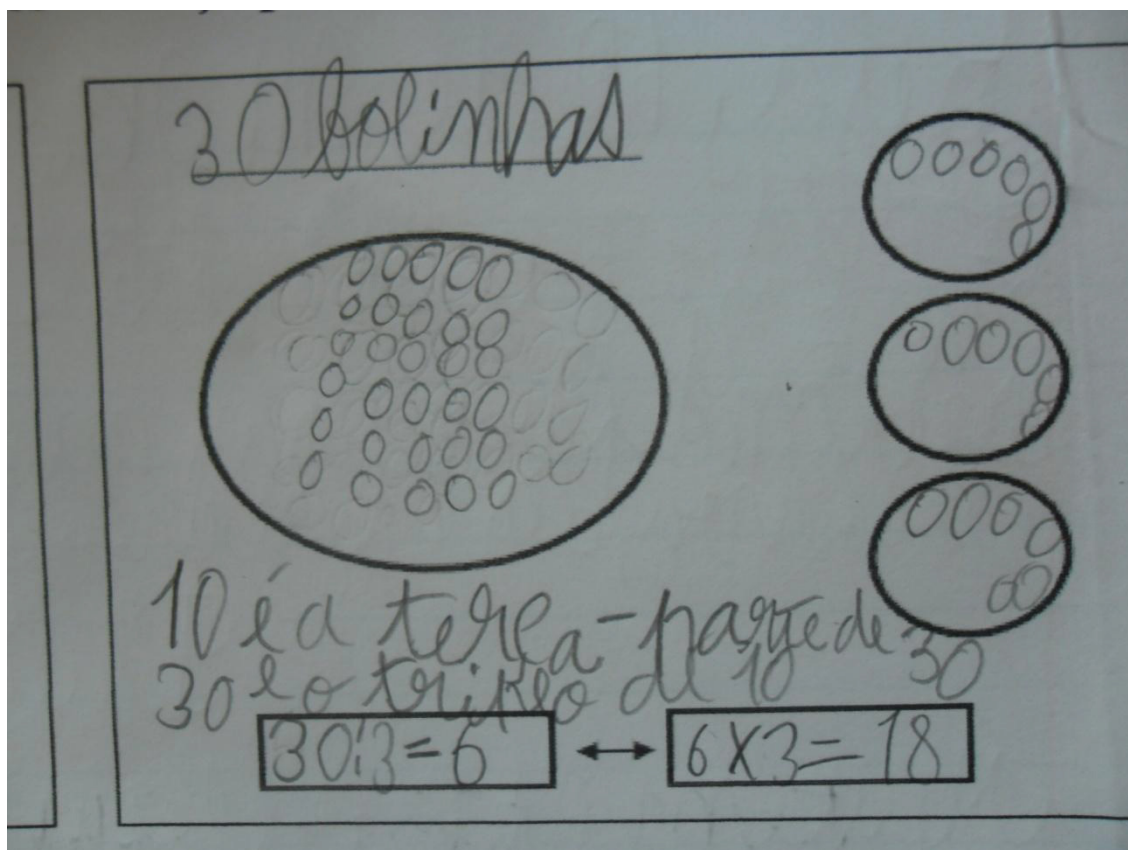 30 bolinhas
10 é a terça-parte de 30
30 é o triplo de 10
30:3=6
6X3=18